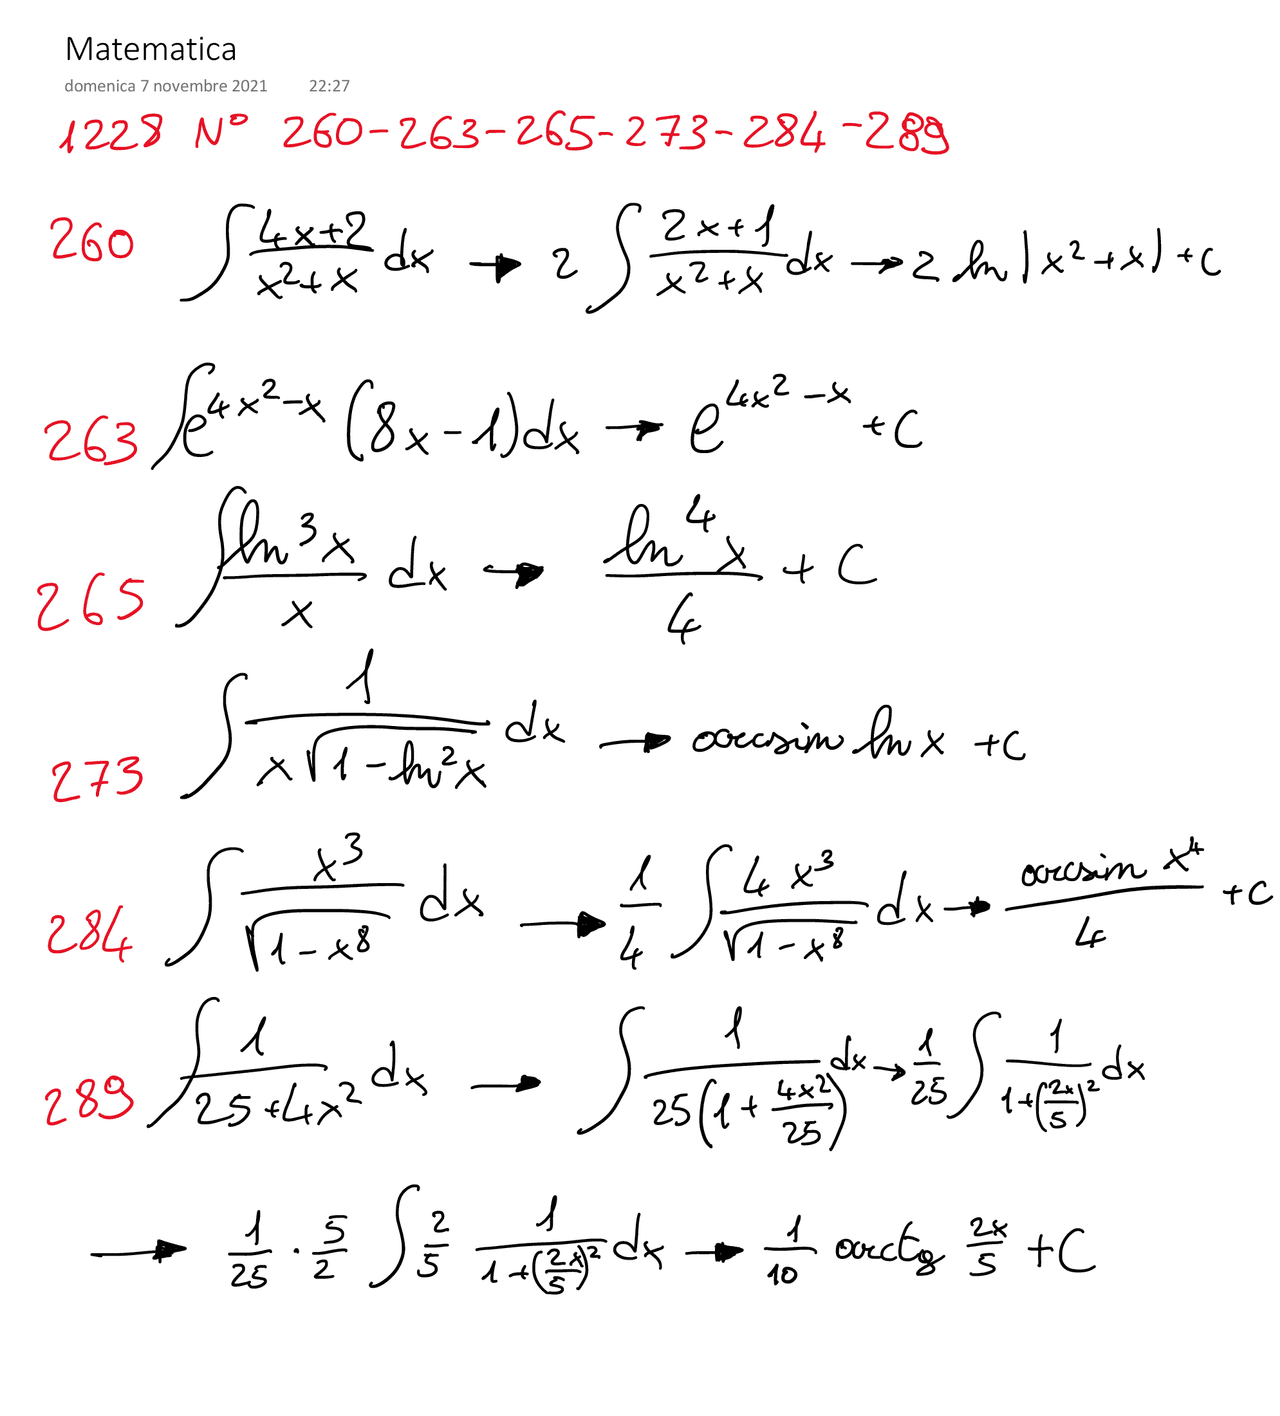 Matematica
domenica 7 novembre 2021 22:27
1228 N° 260-263-265-273-284-289
260 ∫ (4x+2)/(x²+x) dx → 2 ∫ (2x+1)/(x²+x) dx → 2 ln|x²+x| + C
263 ∫ e^(4x²-x) (8x-1)dx → e^(4x²-x) + C
265 ∫ (ln³x)/x dx → (ln⁴x)/4 + C
273 ∫ 1/(x√(1-ln²x)) dx → arcsin ln x + C
284 ∫ x³/√(1-x⁸) dx → 1/4 ∫ 4x³/√(1-x⁸) dx → (arcsin x⁴)/4 + C
289 ∫ 1/(25+4x²) dx → ∫ 1/(25(1+4x²/25)) dx → 1/25 ∫ 1/(1+(2x/5)²) dx
→ 1/25 · 5/2 ∫ 2/5 1/(1+(2x/5)²) dx → 1/10 arctg 2x/5 + C